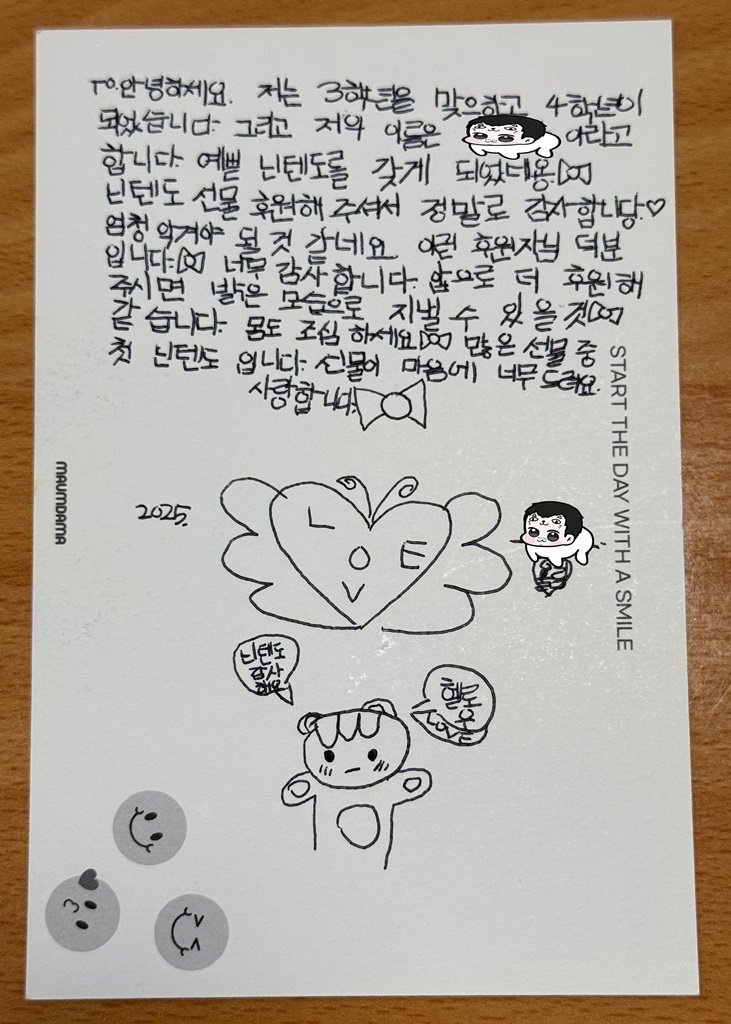 TO.안녕하세요. 저는 3학년을 맞으하고 4학년이
되었습니다. 그리고 저의 이름은 이라고
합니다. 예쁜 닌텐도를 갖게 되었데용
닌텐도 선물 후원해 주셔서 정말로 감사합니당.♡
엄청 아껴야 될 것 같네요. 이런 후원자님 덕분
입니다. 너무 감사합니다. 앞으로 더 후원해
주시면 밝은 모습으로 지낼 수 있을것
같습니다. 몸도 조심하세요 많은 선물 중
첫 닌텐도 입니다. 선물이 마음에 너무 드려요.
사랑합니다.
START THE DAY WITH A SMILE
MAUMDAMA
2025.
LOVE
닌텐도
감사
해요
헬로
LOVE